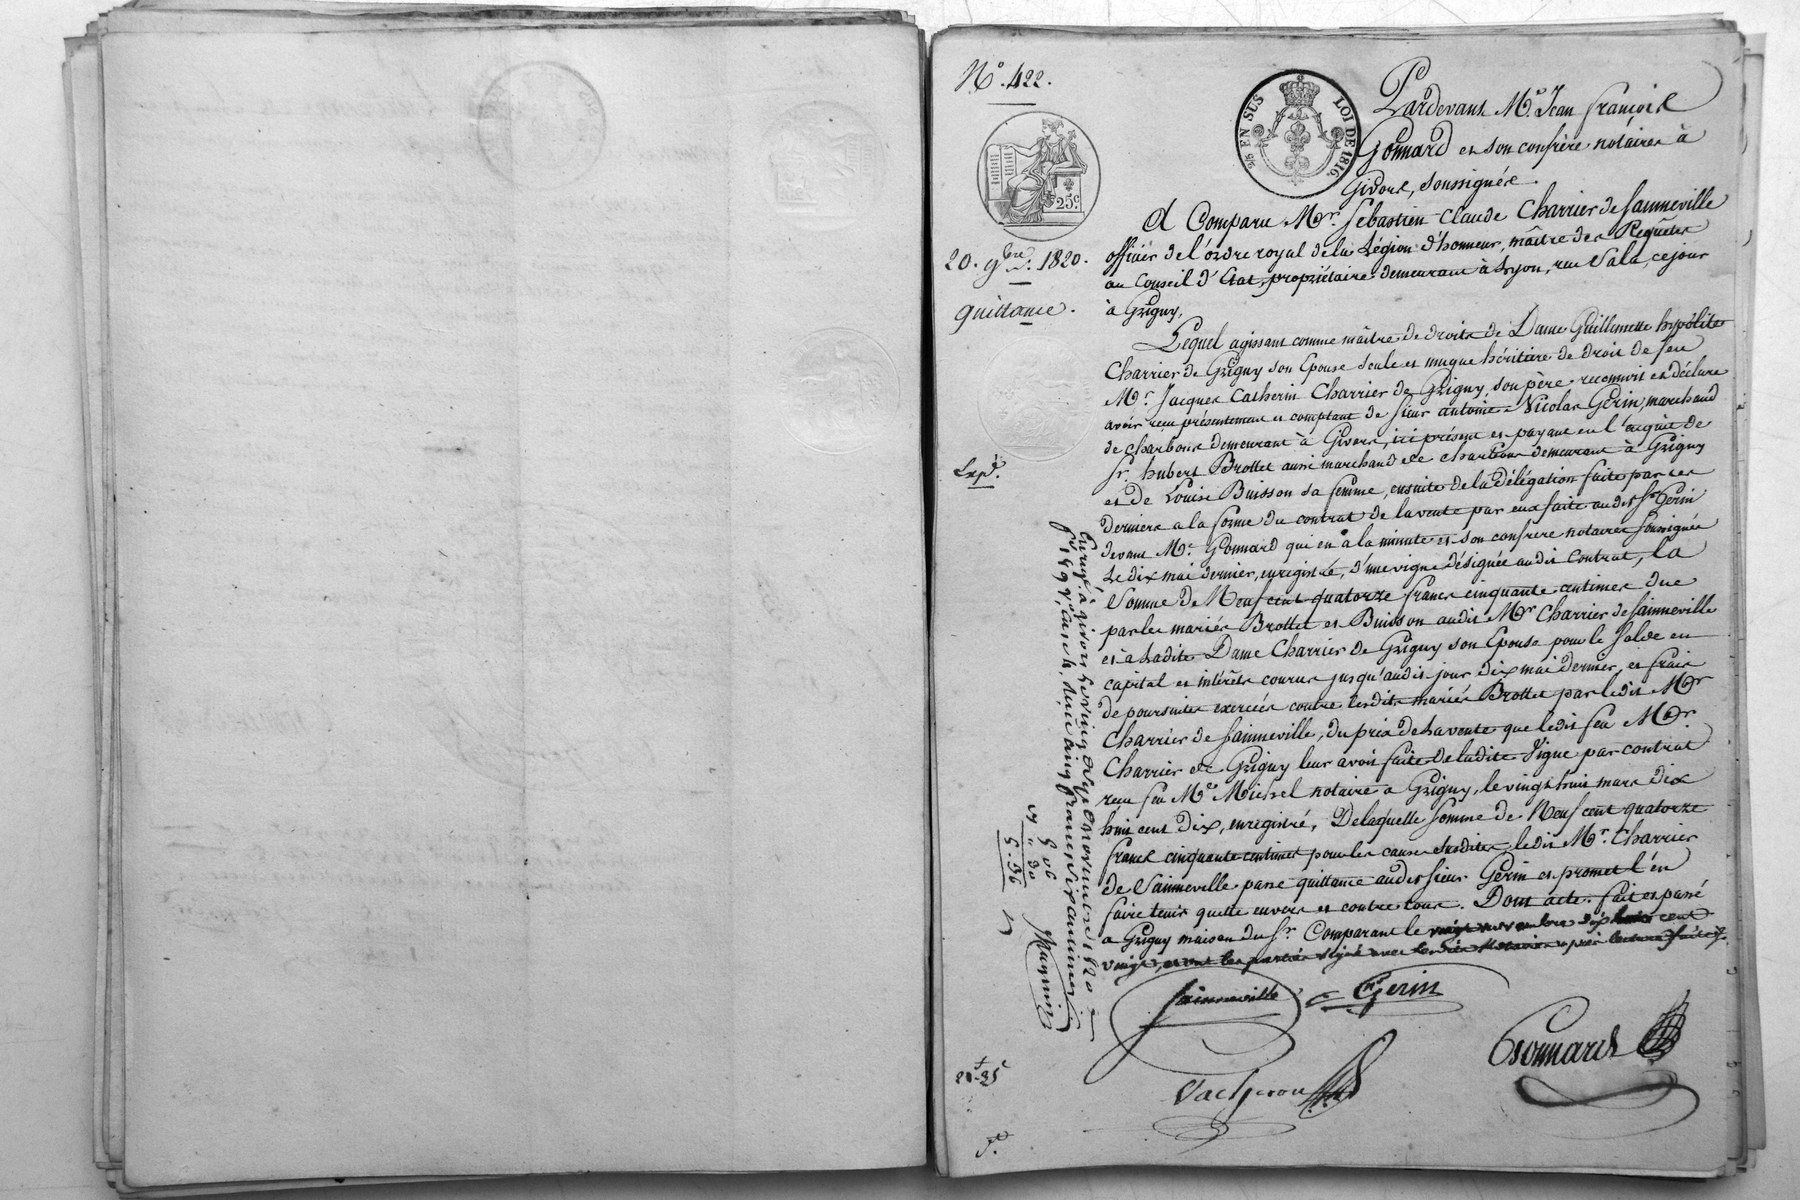 N.° 422.
25 EN SUS
LOI DE 1816.
25.c
20. 9bre. 1820.
quittance.
Exp.é
Pardevant M.e Jean françois
Gonnard et son confrère notaires à
Givors, soussignés.
A Comparu Mr. Sébastien-Claude Charrier de Sainneville
officier de l'ordre royal de la Légion d'honneur, maître des Requêtes
au Conseil d'Etat, propriétaire demeurant à Lyon, rue Sala, ce jour
à Grigny,
Lequel agissant comme maître de droits de Dame Guillemette hypólite
Charrier de Grigny son Epouse seule et unique héritière de droit de feu
Mr. Jacques Catherin Charrier de Grigny, son père reconnait et déclare
avoir reçu présentement et comptant de sieur antoine-Nicolas Gerin, marchand
de charbons demeurant à Givors, ici présent et payant en l'acquit de
Sr. hubert Brottet aussi marchand de charbons demeurant à Grigny
et de Louise Buisson sa femme, ensuite de la délégation faite par ces
derniers a la forme du contrat de la vente par eux faite audit Sr. Gerin
devant Me. Gonnard qui en a la minute et son confrere notaires soussignés
Le dix mai dernier, enregistré, d'une vigne désignée audit Contrat, la
Somme de Neuf cent quatorze francs cinquante centimes due
par les mariés Brottet et Buisson audit Mr. Charrier de Sainneville
et à Ladite Dame Charrier de Grigny son Epouse pour le Solde en
capital et intérêts courus jusqu'audit jour dix mai dernier, et frais
de poursuites exercées contre lesdits mariés Brottet par ledit Mr.
Charrier de Sainneville, du prix de la vente que ledit feu Mr.
Charrier de Grigny leur avoit faite de ladite Vigne par contrat
reçu feu Me. Michel notaire à Grigny, le vingt huit mars dix
huit cent Dix, enregistré, De laquelle somme de Neuf cent quatorze
francs cinquante centimes pour les causes susdites ledit Mr. Charrier
de Sainneville passe quittance audit sieur Gerin et promet l'en
faire tenir quitte envers et contre tous. Dont acte. fait et passé
a Grigny maison du Sr. Comparant le vingt novembre dix huit cent
vingt, et ont les parties signé avec lesdits Notaires après lecture faite
Sainneville
Gerin
Gonnard
Vacheron
Enregé. à givors le vingt sept novembre 1820
f° 149 vo. case 4, reçu cinq francs six centimes
5 06
" 50
5.56